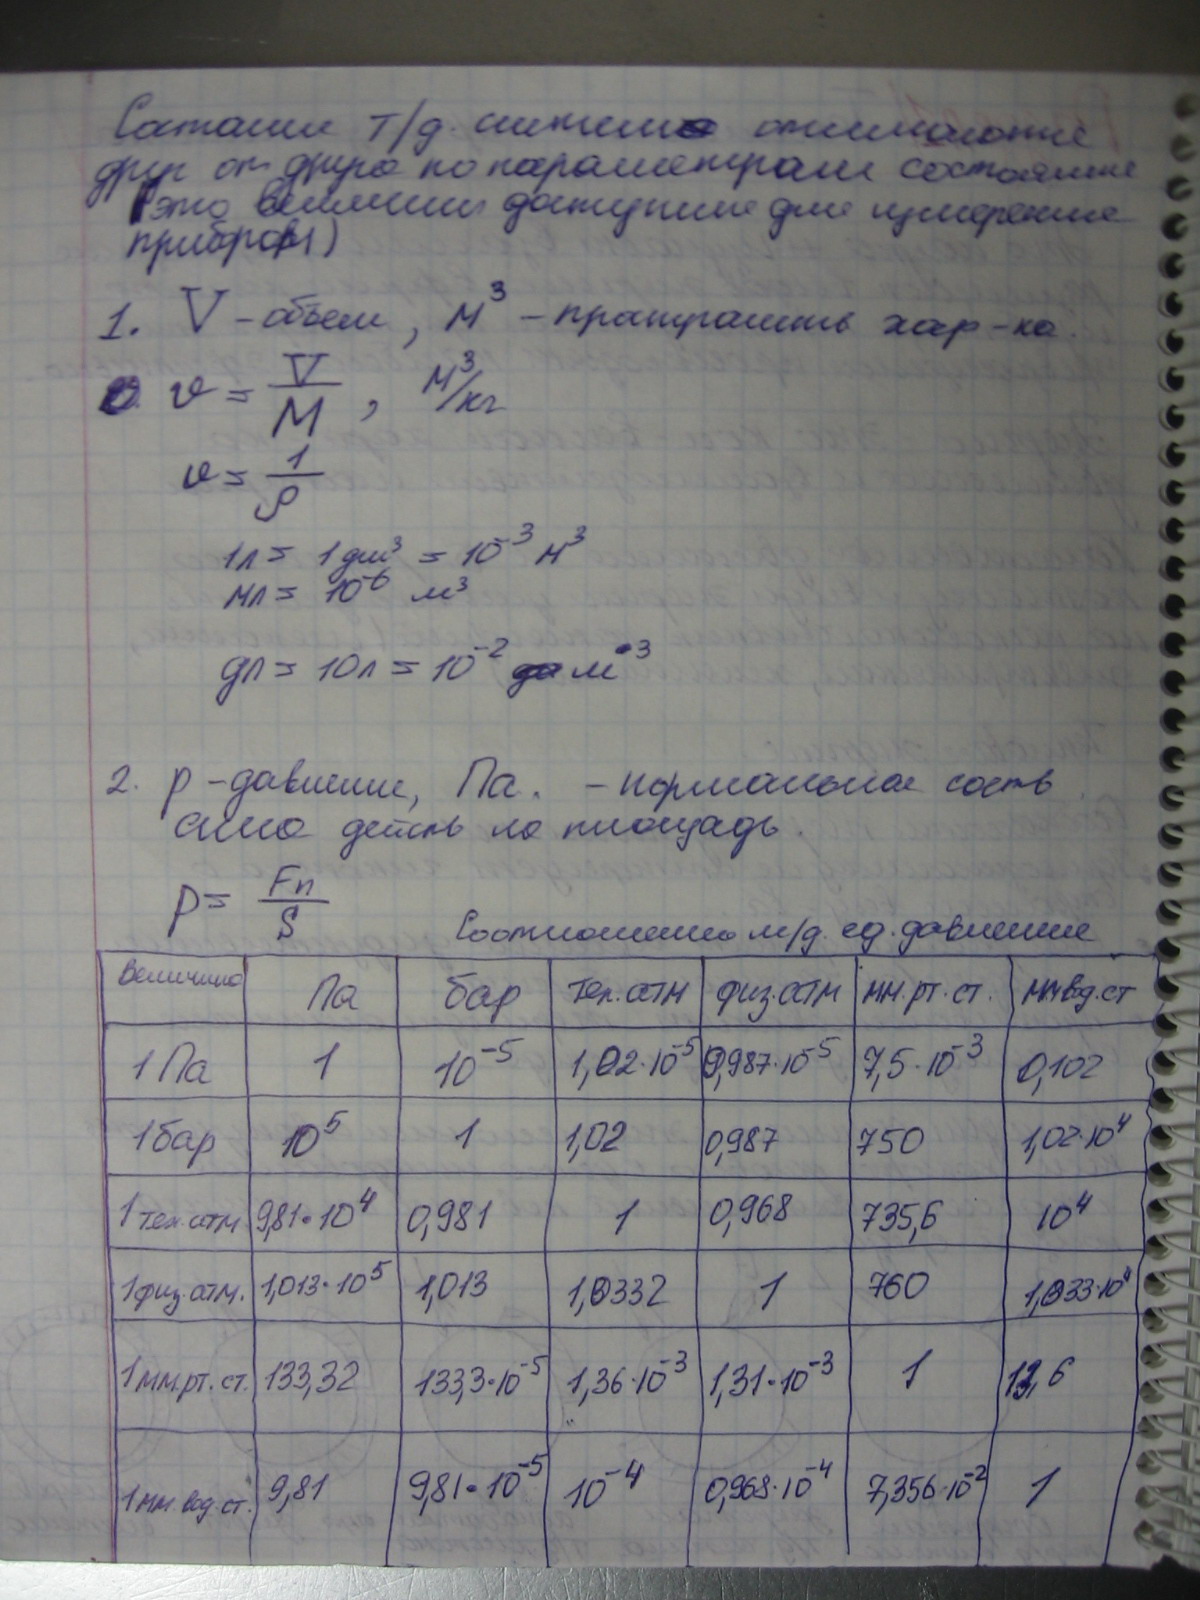 Состояния т/д. системы отличаются
друг от друга по параметрам состояния
(это величины доступные для измерения
прибором)
1. V – объем, м³ – пространств хар-ка.
v = V/M, м³/кг
v = 1/ρ
1л = 1 дм³ = 10⁻³ м³
мл = 10⁻⁶ м³
дл = 10л = 10⁻² м³
2. p – давление, Па. – нормальная сост
сила дейтв на площадь.
p = Fn/S
Соотношение м/д. ед. давления
Величина Па бар тех.атм физ.атм мм.рт.ст. мм вод.ст
1 Па 1 10⁻⁵ 1,02·10⁻⁵ 0,987·10⁻⁵ 7,5·10⁻³ 0,102
1 бар 10⁵ 1 1,02 0,987 750 1,02·10⁴
1 тех.атм 9,81·10⁴ 0,981 1 0,968 735,6 10⁴
1 физ.атм. 1,013·10⁵ 1,013 1,0332 1 760 1,033·10⁴
1 мм.рт.ст. 133,32 133,3·10⁻⁵ 1,36·10⁻³ 1,31·10⁻³ 1 13,6
1 мм.вод.ст. 9,81 9,81·10⁻⁵ 10⁻⁴ 0,968·10⁻⁴ 7,356·10⁻² 1